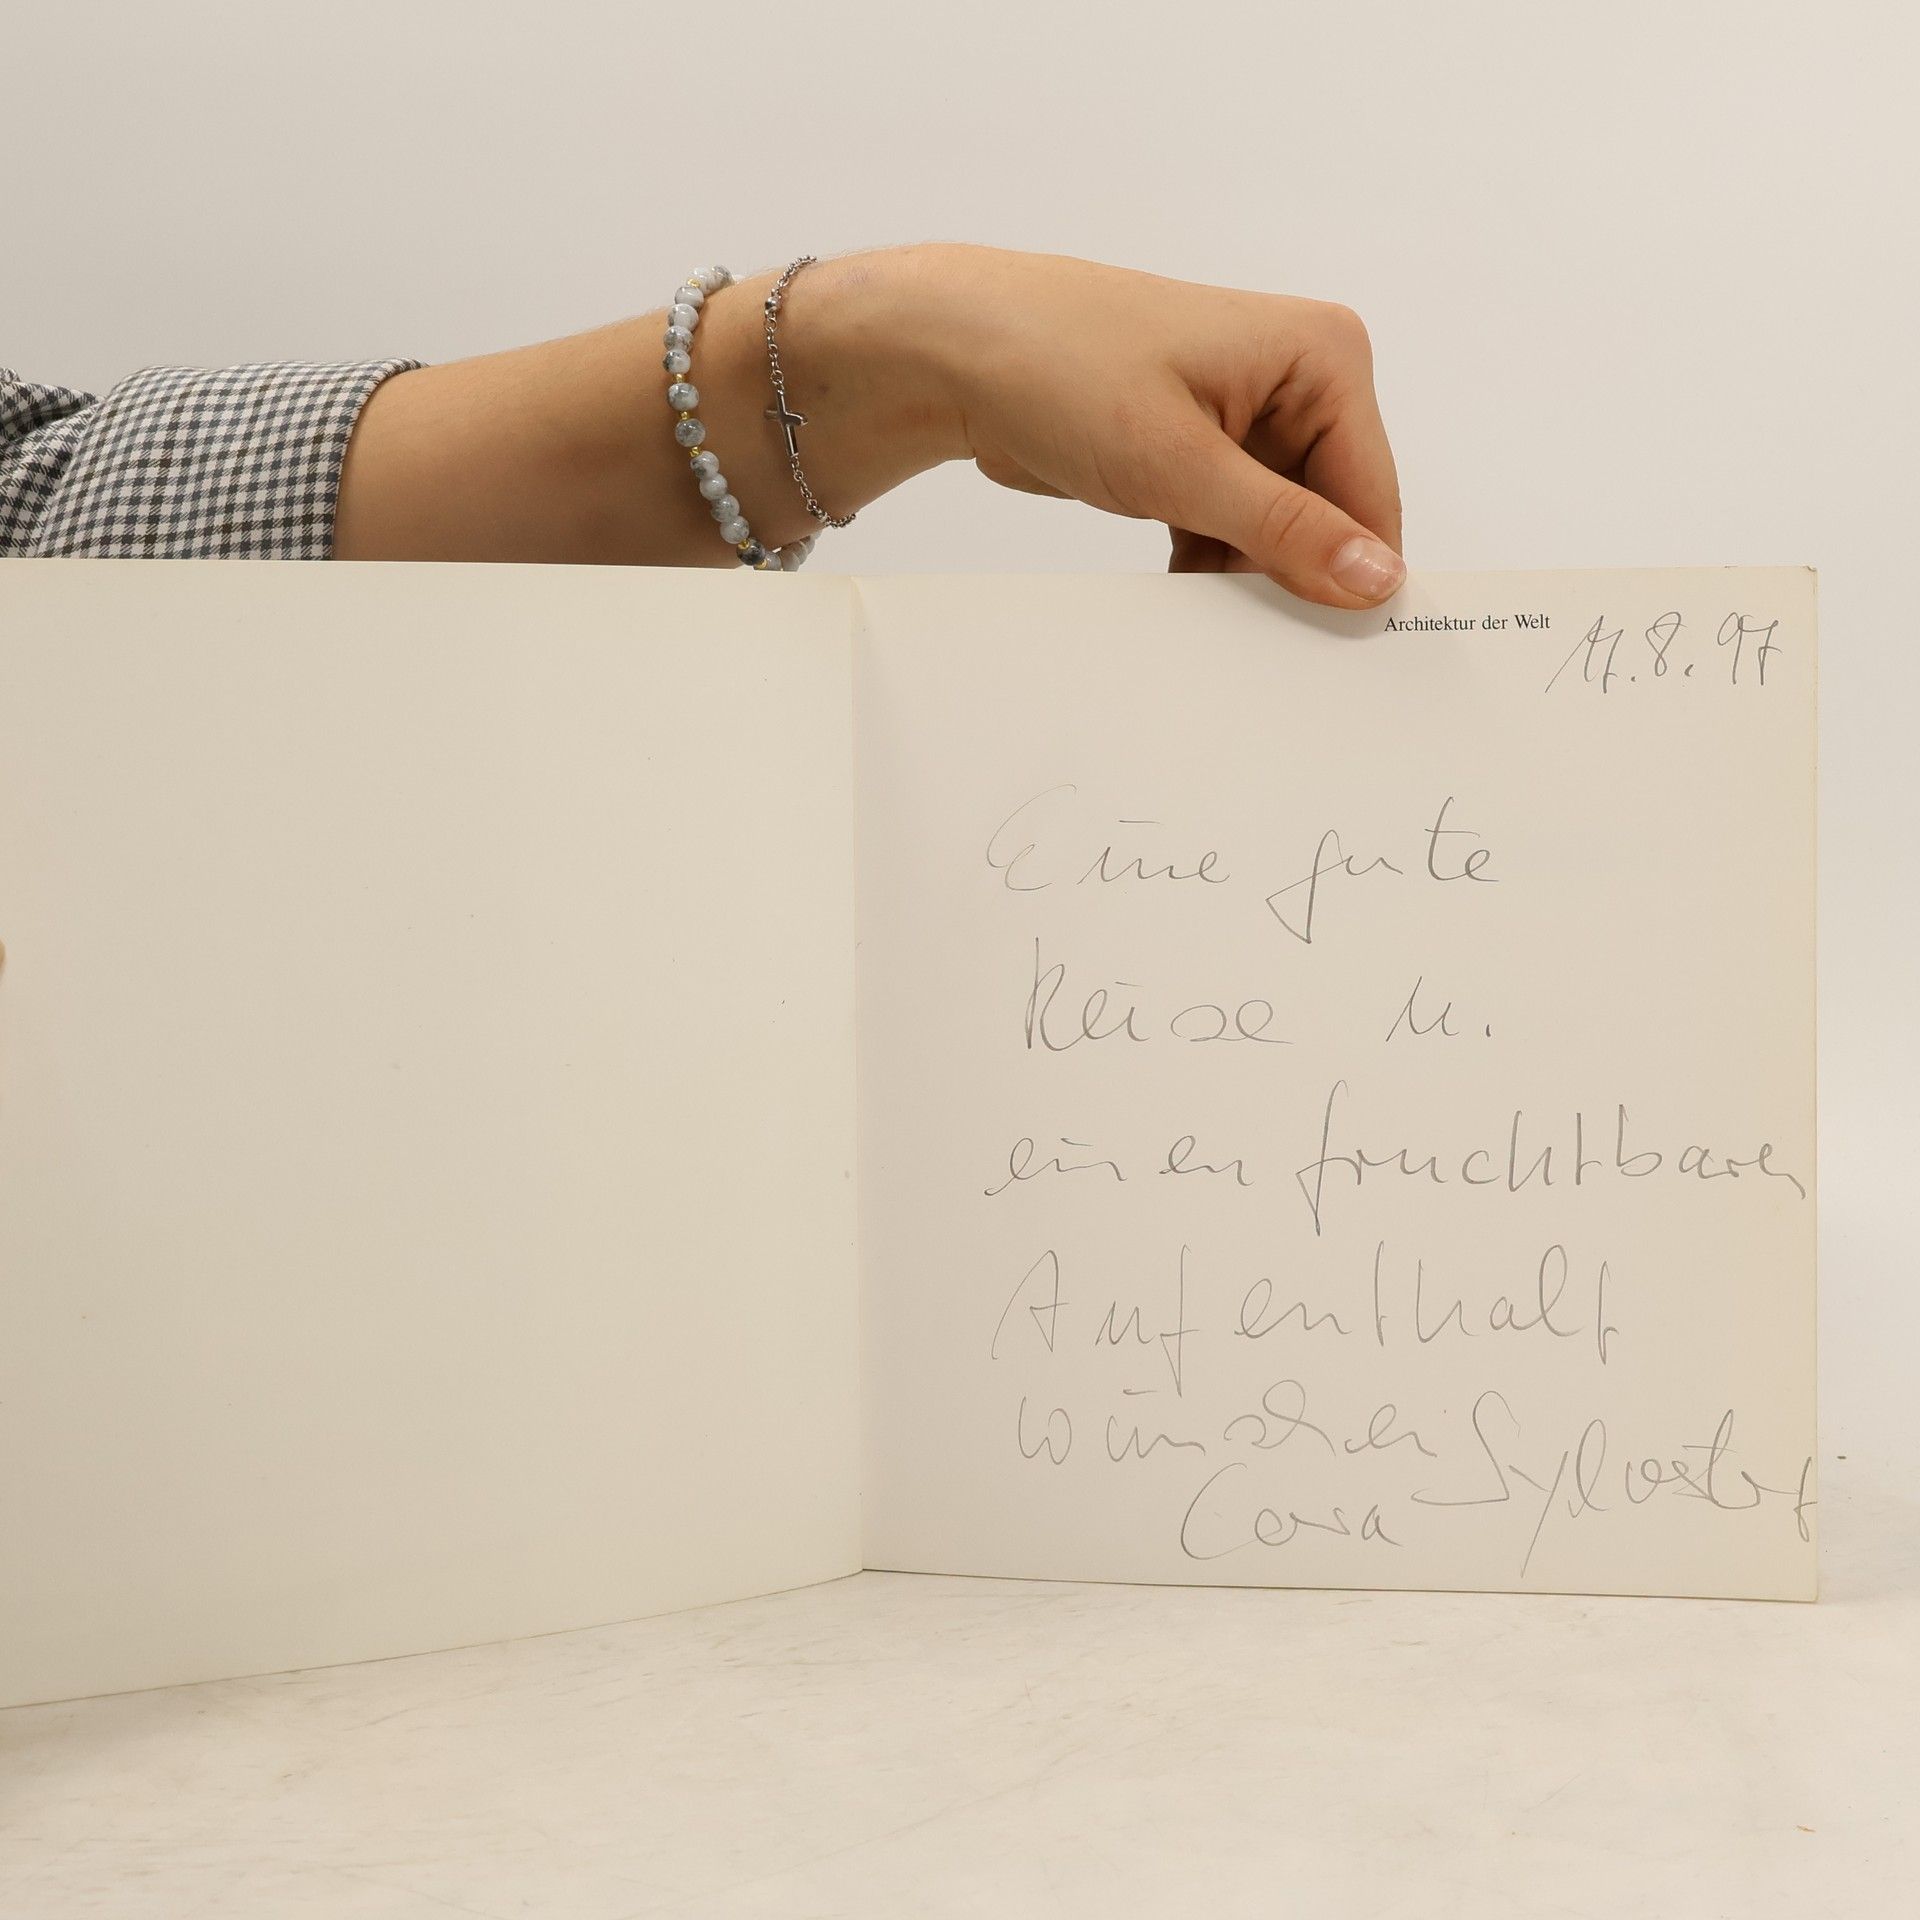 Architektur der Welt
17.8.97
Eine gute
Reise u.
einen fruchtbaren
Aufenthalt
wünschen
Sylvester